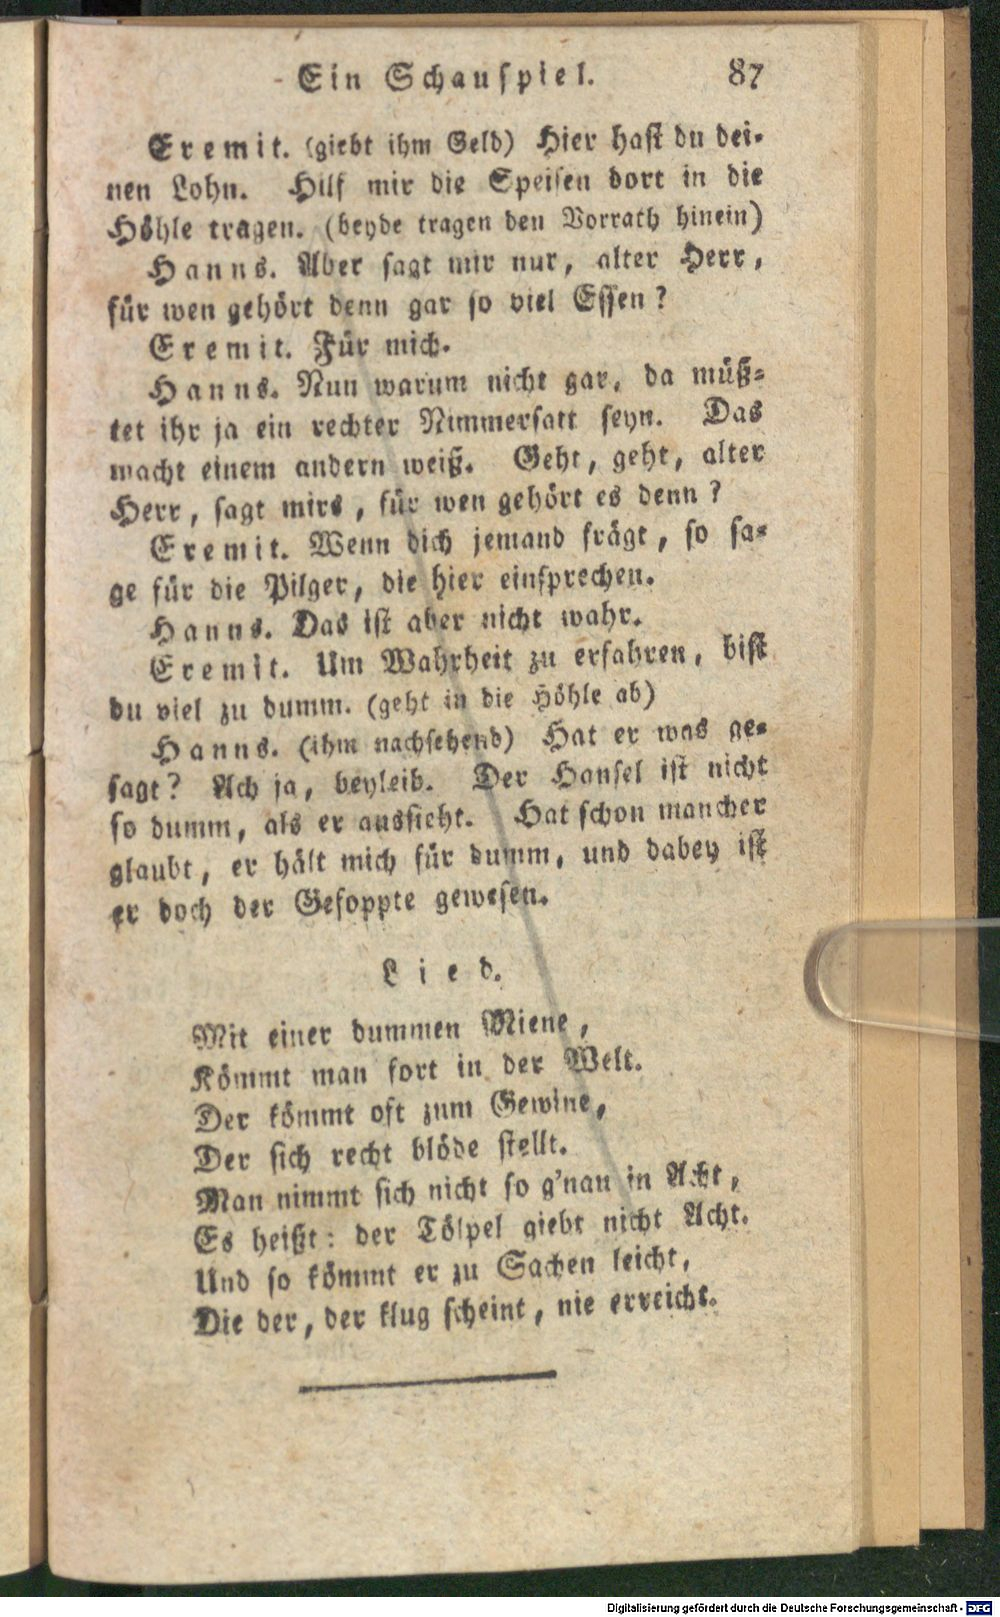 Ein Schauspiel. 87
Eremit. (giebt ihm Geld) Hier hast du dei-
nen Lohn. Hilf mir die Speisen dort in die
Höhle tragen. (beyde tragen den Vorrath hinein)
Hanns. Aber sagt mir nur, alter Herr,
für wen gehört denn gar so viel Essen?
Eremit. Für mich.
Hanns. Nun warum nicht gar, da müß-
tet ihr ja ein rechter Nimmersatt seyn. Das
macht einem andern weiß. Geht, geht, alter
Herr, sagt mirs, für wen gehört es denn?
Eremit. Wenn dich jemand frägt, so sa-
ge für die Pilger, die hier einsprechen.
Hanns. Das ist aber nicht wahr.
Eremit. Um Wahrheit zu erfahren, bist
du viel zu dumm. (geht in die Höhle ab)
Hanns. (ihm nachsehend) Hat er was ge-
sagt? Ach ja, beyleib. Der Hansel ist nicht
so dumm, als er aussieht. Hat schon mancher
glaubt, er hält mich für dumm, und dabey ist
er doch der Gefoppte gewesen.
Lied.
Mit einer dummen Miene,
Kömmt man fort in der Welt.
Der kömmt oft zum Gewine,
Der sich recht blöde stellt.
Man nimmt sich nicht so g'nau in Acht,
Es heißt: der Tölpel giebt nicht Acht.
Und so kömmt er zu Sachen leicht,
Die der, der klug scheint, nie erreicht.
Digitalisierung gefördert durch die Deutsche Forschungsgemeinschaft - DFG